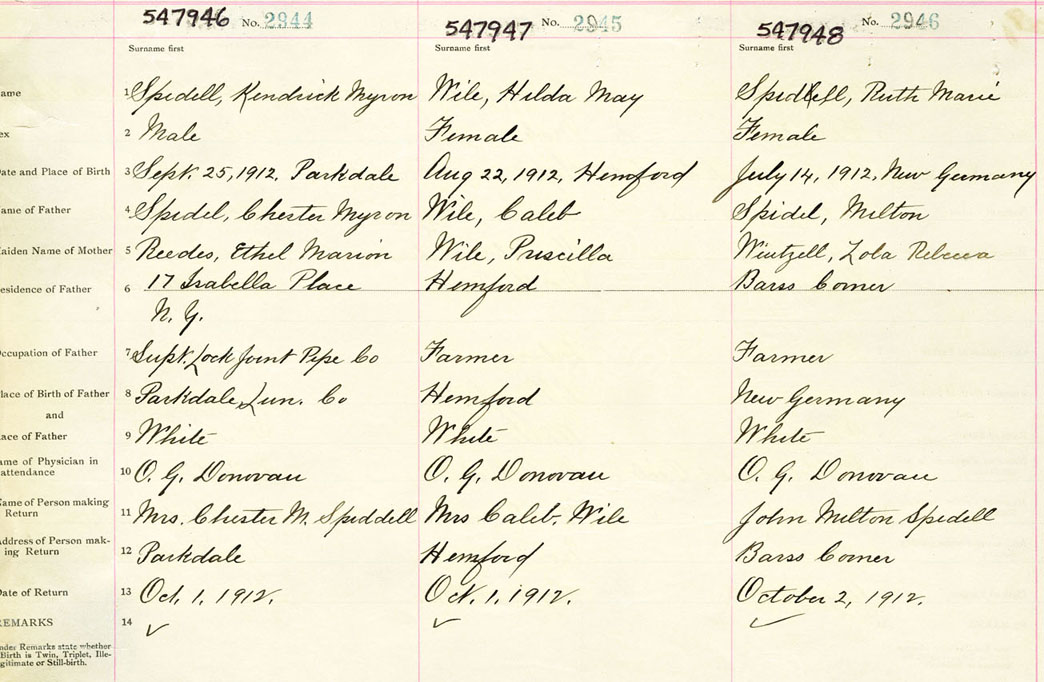 547946 No. 2944 547947 No. 2945 547948 No. 2946
Surname first Surname first Surname first
ame 1 Spidell, Kendrick Myron Wile, Hilda May Spidell, Ruth Marie
ex 2 Male Female Female
Date and Place of Birth 3 Sept. 25, 1912, Parkdale Aug 22, 1912, Hemford July 14, 1912, New Germany
ame of Father 4 Spidel, Chester Myron Wile, Caleb Spidel, Milton
aiden Name of Mother 5 Reedes, Ethel Marion Wile, Priscilla Wintzell, Zola Rebecca
esidence of Father 6 17 Isabella Place Hemford Barss Corner
N. Y.
Occupation of Father 7 Supt. Lock Joint Pipe Co Farmer Farmer
lace of Birth of Father 8 Parkdale, Lun. Co Hemford New Germany
and
ace of Father 9 White White White
ame of Physician in
attendance 10 O. G. Donovan O. G. Donovan O. G. Donovan
Name of Person making
Return 11 Mrs. Chester M. Spiddell Mrs Caleb. Wile John Milton Spidell
Address of Person mak-
ing Return 12 Parkdale Hemford Barss Corner
Date of Return 13 Oct. 1, 1912. Oct. 1, 1912. October 2, 1912.
REMARKS 14
nder Remarks state whether
Birth is Twin, Triplet, Ille-
gitimate or Still-birth.